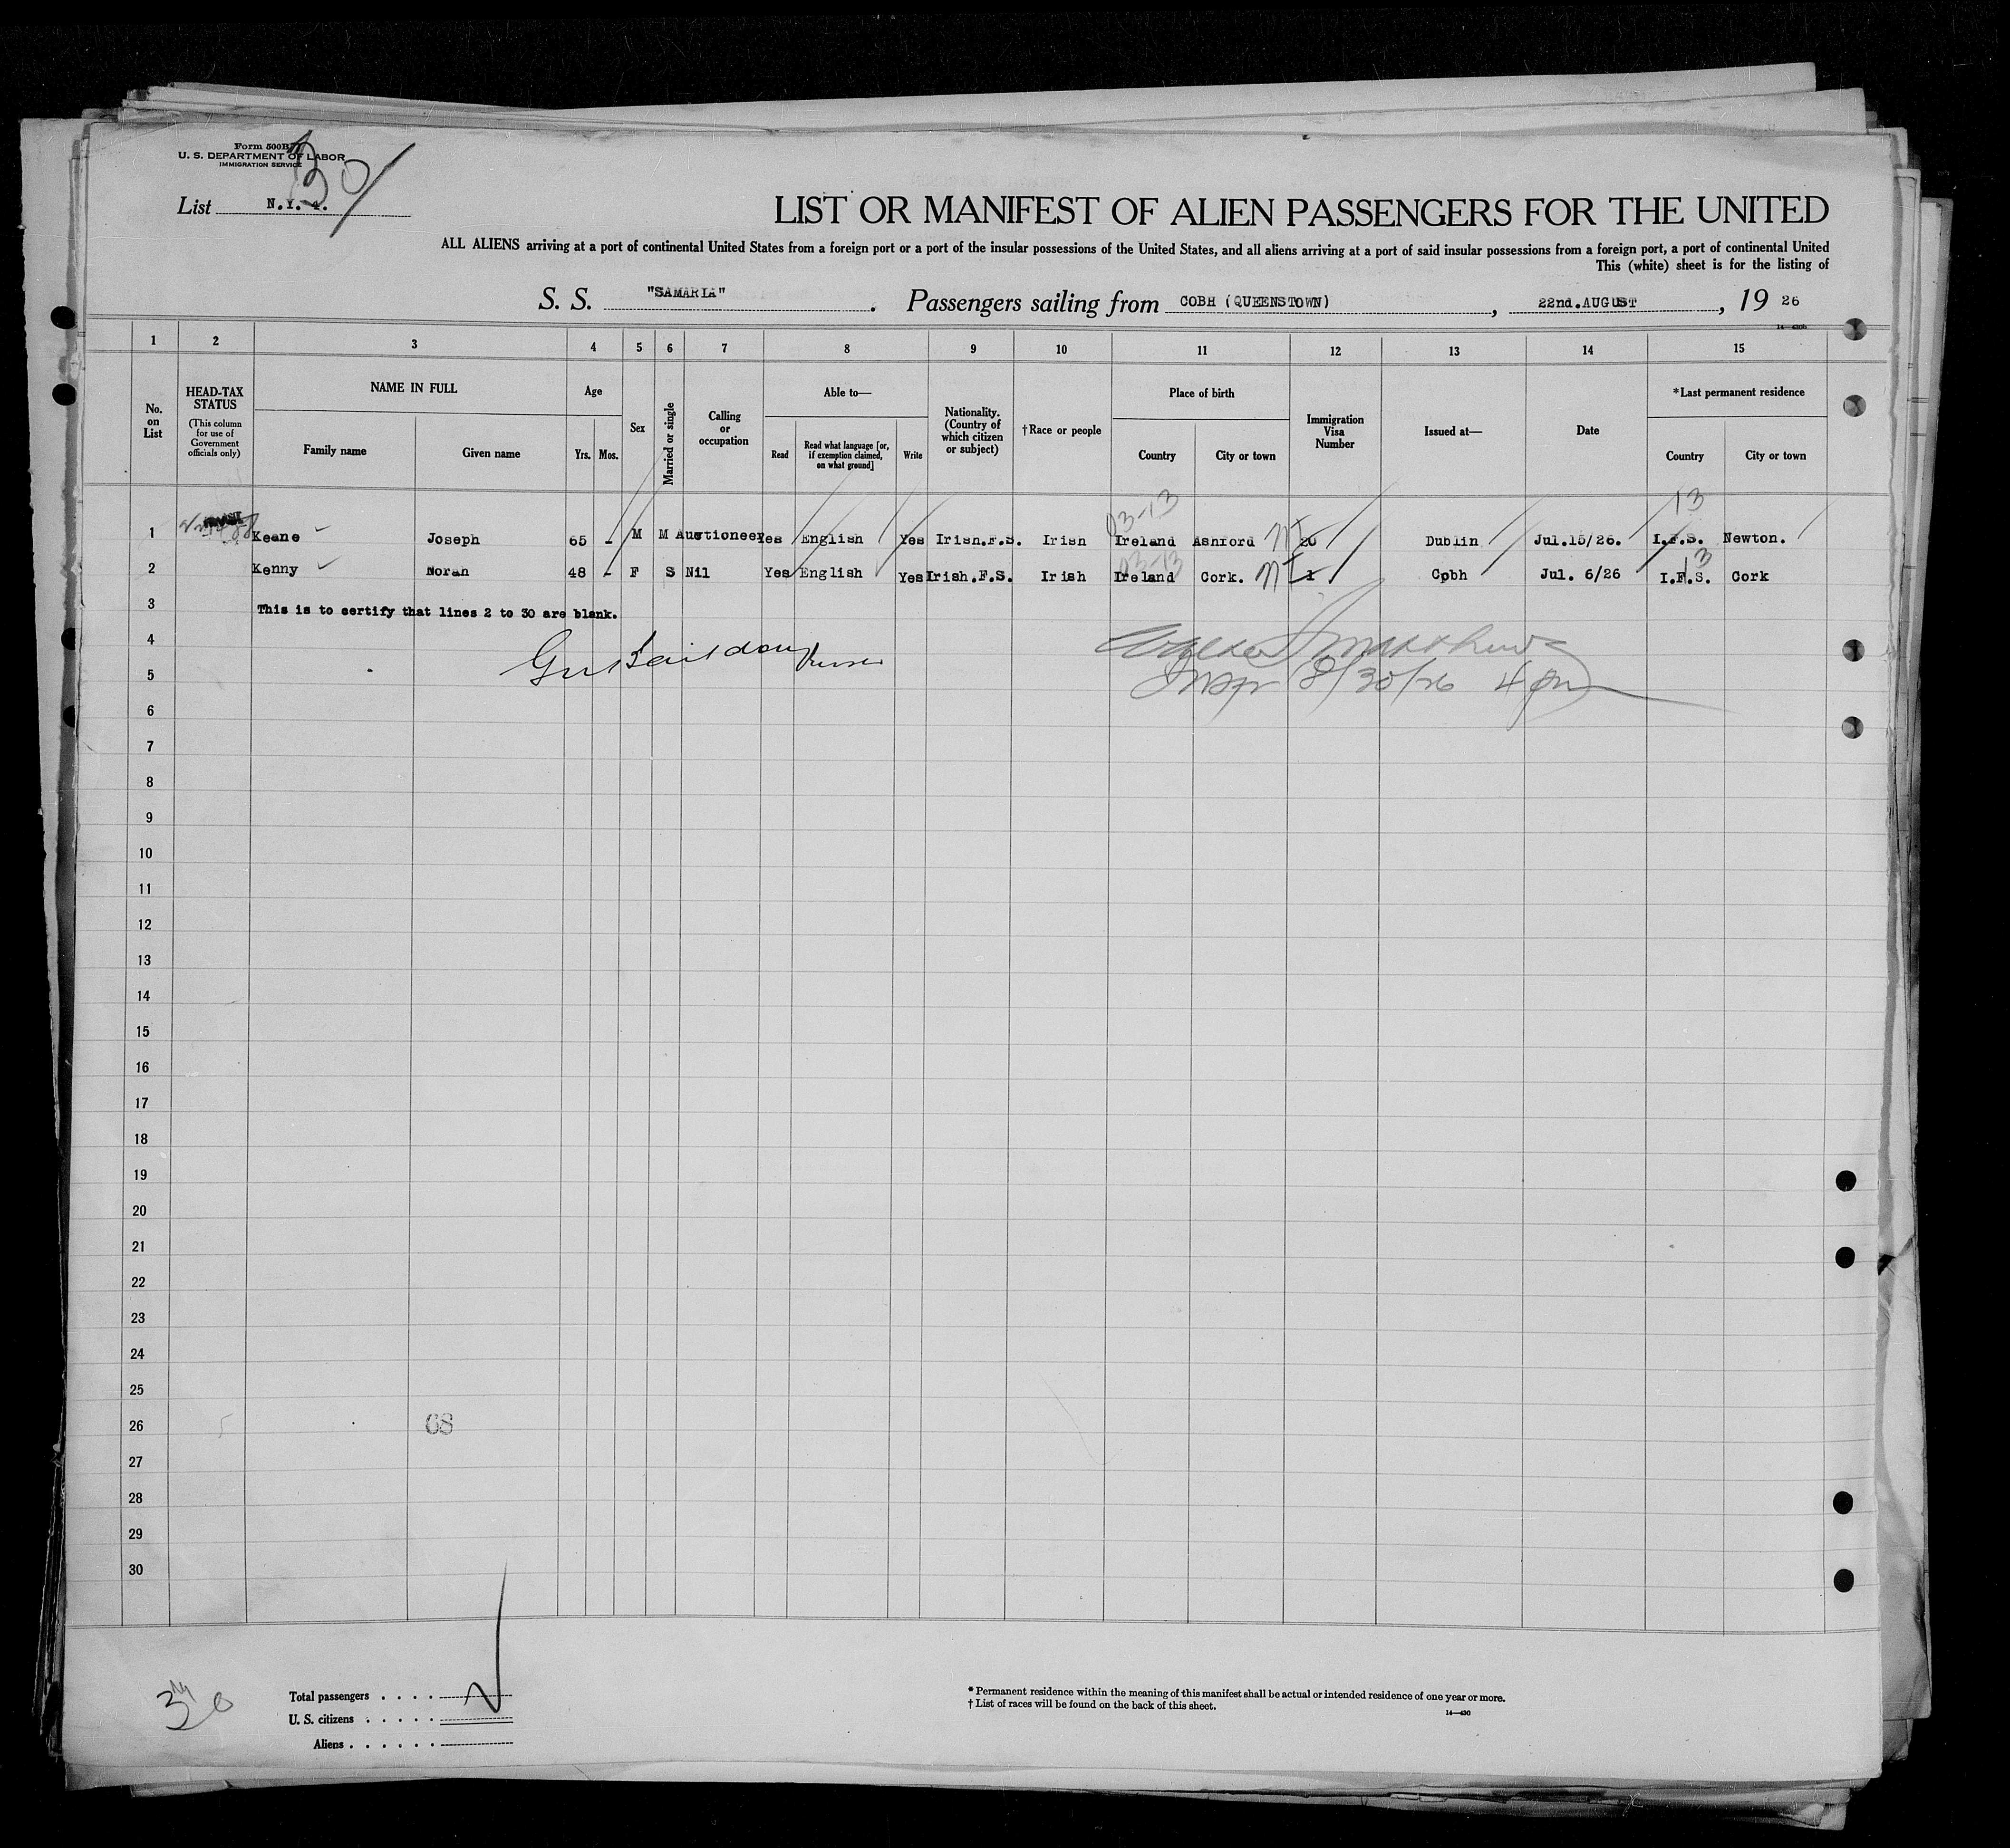 Form 500B
U. S. DEPARTMENT OF LABOR
IMMIGRATION SERVICE
30
List N.Y. 4.
LIST OR MANIFEST OF ALIEN PASSENGERS FOR THE UNITED
ALL ALIENS arriving at a port of continental United States from a foreign port or a port of the insular possessions of the United States, and all aliens arriving at a port of said insular possessions from a foreign port, a port of continental United
This (white) sheet is for the listing of
S. S. "SAMARIA". Passengers sailing from COBH (QUEENSTOWN), 22nd.AUGUST, 19 26
1 2 3 4 5 6 7 8 9 10 11 12 13 14 15
No. on List
HEAD-TAX STATUS
(This column for use of Government officials only)
NAME IN FULL
Family name Given name
Age
Yrs. Mos.
Sex
Married or single
Calling or occupation
Able to—
Read
Read what language [or, if exemption claimed, on what ground]
Write
Nationality. (Country of which citizen or subject)
†Race or people
Place of birth
Country City or town
Immigration Visa Number
Issued at—
Date
*Last permanent residence
Country City or town
03-13 13
1 Keane Joseph 65 - M M Auctioneer Yes English Yes Irish.F.S. Irish Ireland Ashford 20 Dublin Jul.15/26. I.F.S. Newton.
03-13 13
2 Kenny Norah 48 - F S Nil Yes English Yes Irish.F.S. Irish Ireland Cork. 1 Cobh Jul. 6/26 I.F.S. Cork
3 This is to certify that lines 2 to 30 are blank.
4
5 Inspr 8/30/26 4 pm
6
7
8
9
10
11
12
13
14
15
16
17
18
19
20
21
22
23
24
25
26 68
27
28
29
30
Total passengers
U. S. citizens
Aliens
* Permanent residence within the meaning of this manifest shall be actual or intended residence of one year or more.
† List of races will be found on the back of this sheet.
14—430